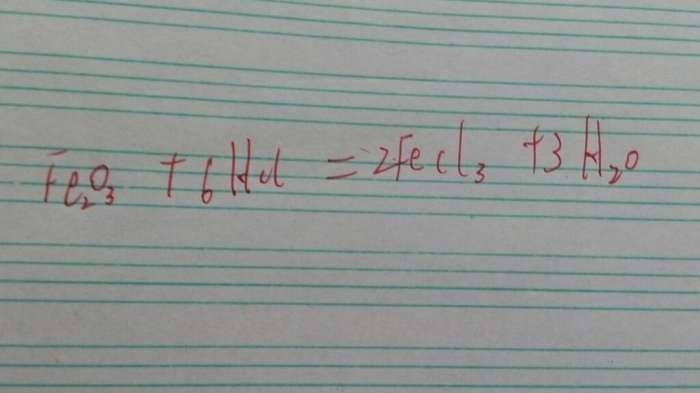 Fe₂O₃ + 6HCl = 2FeCl₃ + 3H₂O